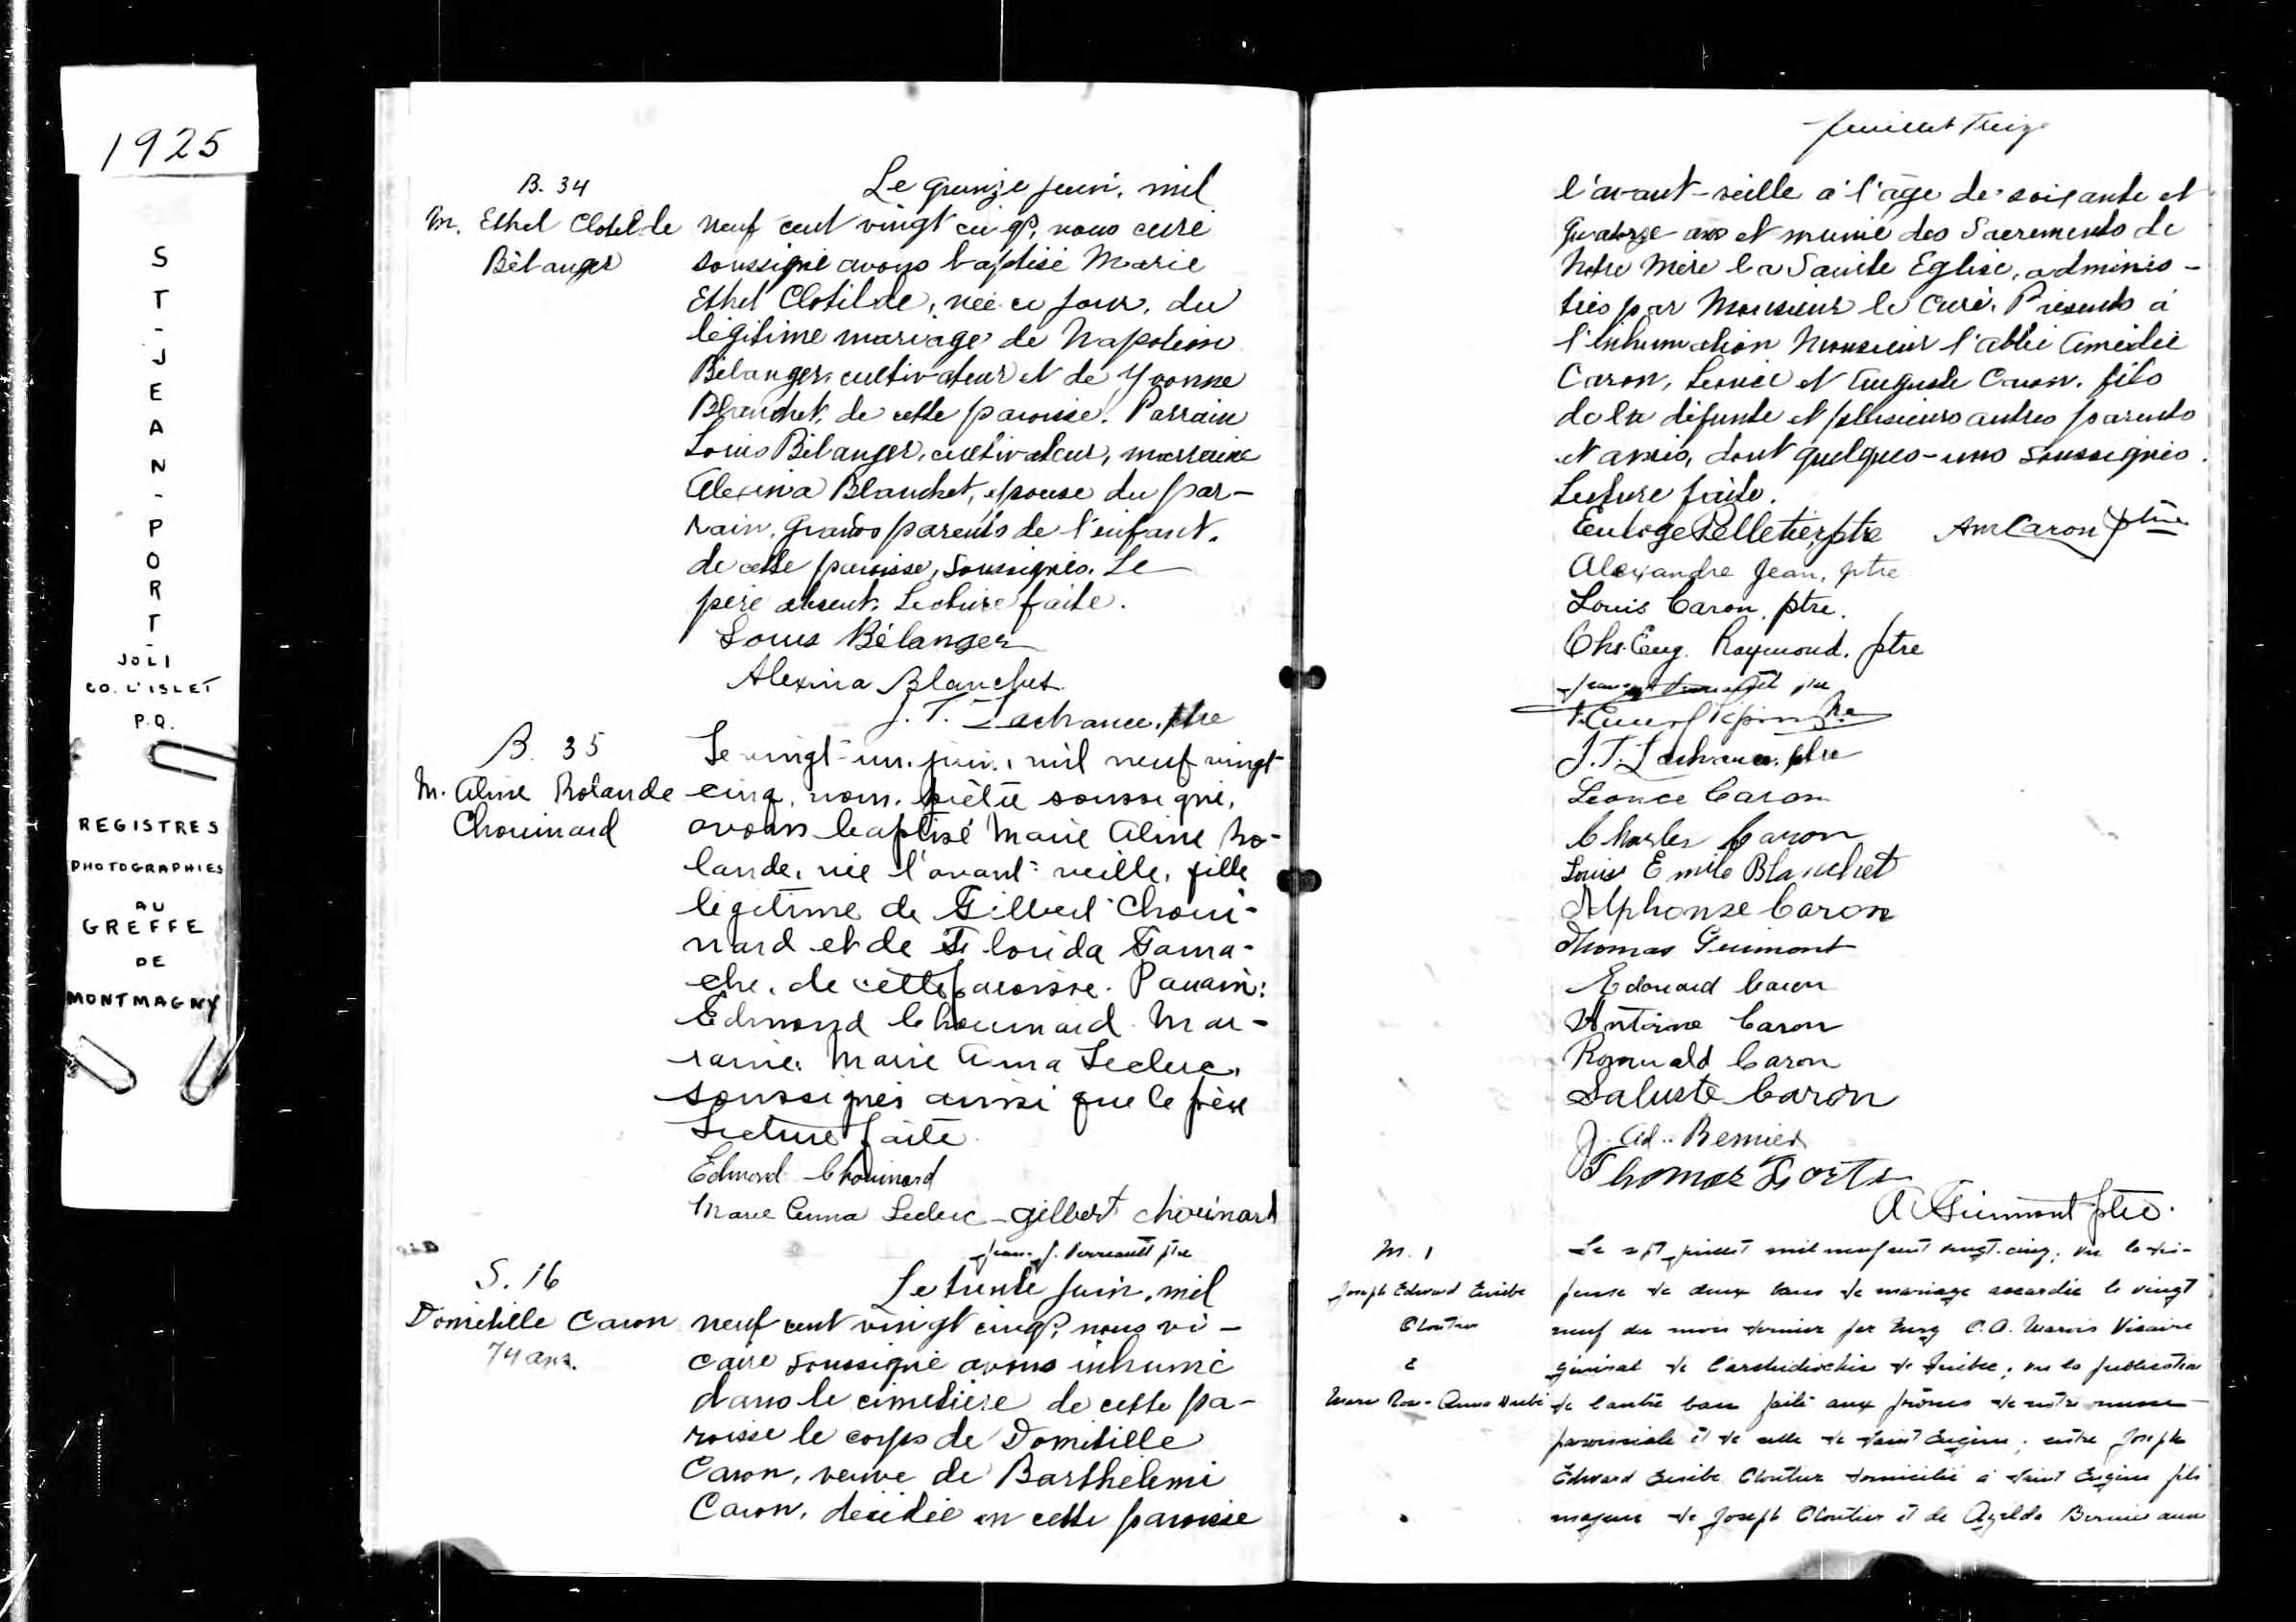 1925
ST-JEAN-PORT-
JOLI
CO. L'ISLET
P.Q.
REGISTRES
PHOTOGRAPHIES
AU
GREFFE
DE
MONTMAGNY
B. 34
M. Ethel Clotilde
Bélanger
Le quinze juin, mil
neuf cent vingt cinq, nous curé
soussigné avons baptisé Marie
Ethel Clotilde, née ce jour, du
légitime mariage de Napoléon
Bélanger, cultivateur et de Yvonne
Blanchet, de cette paroisse. Parrain
Louis Bélanger, cultivateur, marraine
Alexina Blanchet, épouse du par-
rain, grands parents de l'enfant,
de cette paroisse, soussignés. Le
père absent. Lecture faite.
Louis Bélanger
Alexina Blanchet
J. T. Lachance, ptre
B. 35
M. Aline Rolande
Chouinard
Le vingt-un juin, mil neuf vingt-
cinq, nous, prêtre soussigné,
avons baptisé Marie Aline Ro-
lande, née l'avant-veille, fille
légitime de Gilbert Choui-
nard et de Florida Gama-
che, de cette paroisse. Parrain:
Edmond Chouinard. Mar-
raine: Marie Anna Leclerc,
soussignés ainsi que le père
Lecture faite.
Edmond Chouinard
Marie Anna Leclerc - Gilbert Chouinard
Jean-J. Perreault ptre
S. 16
Domitille Caron
74 ans.
Le trente juin, mil
neuf cent vingt cinq, nous vi-
caire soussigné avons inhumé
dans le cimetière de cette pa-
roisse le corps de Domitille
Caron, veuve de Barthélemi
Caron, décédée en cette paroisse
feuillet Treize
l'avant-veille à l'âge de soixante et
quatorze ans et munie des Sacrements de
Notre Mère la Sainte Eglise, adminis-
trés par Monsieur le Curé. Présents à
l'inhumation Monsieur l'abbé Amédée
Caron, Léonce et Auguste Caron, fils
de la défunte et plusieurs autres parents
et amis, dont quelques-uns soussignés.
Lecture faite.
Euloge Pelletier, ptre Am Caron ptre
Alexandre Jean, ptre
Louis Caron, ptre.
Chs. Eug. Raymond, ptre
J. T. Lachance, ptre
Léonce Caron
Charles Caron
Louis Emile Blanchet
Alphonse Caron
Thomas Guimont
Edouard Caron
Antoine Caron
Romuald Caron
Saluste Caron
J. Ad. Bernier
Thomas Fortin
A Guimont ptre.
M. 1
Joseph Edward Eusèbe
Cloutier
&
Marie Rose-Anna Dubé
Le sept juillet mil neuf cent vingt-cinq; vu la dis-
pense de deux bans de mariage accordée le vingt
neuf du mois dernier par Msrg C. A. Marois Vicaire
général de l'archidiocèse de Québec; vu la publication
de l'autre ban faite aux prônes de notre messe
paroissiale et de celle de Saint Eugène; entre Joseph
Edward Eusèbe Cloutier domicilié à Saint Eugène fils
majeur de Joseph Cloutier et de Azilda Bernier aussi